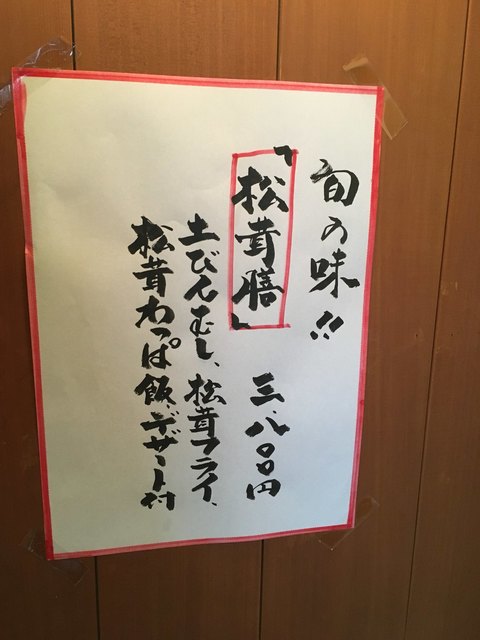 旬の味!!
「松茸膳」 三、八〇〇円
土びんむし、松茸フライ、
松茸わっぱ飯、デザート付